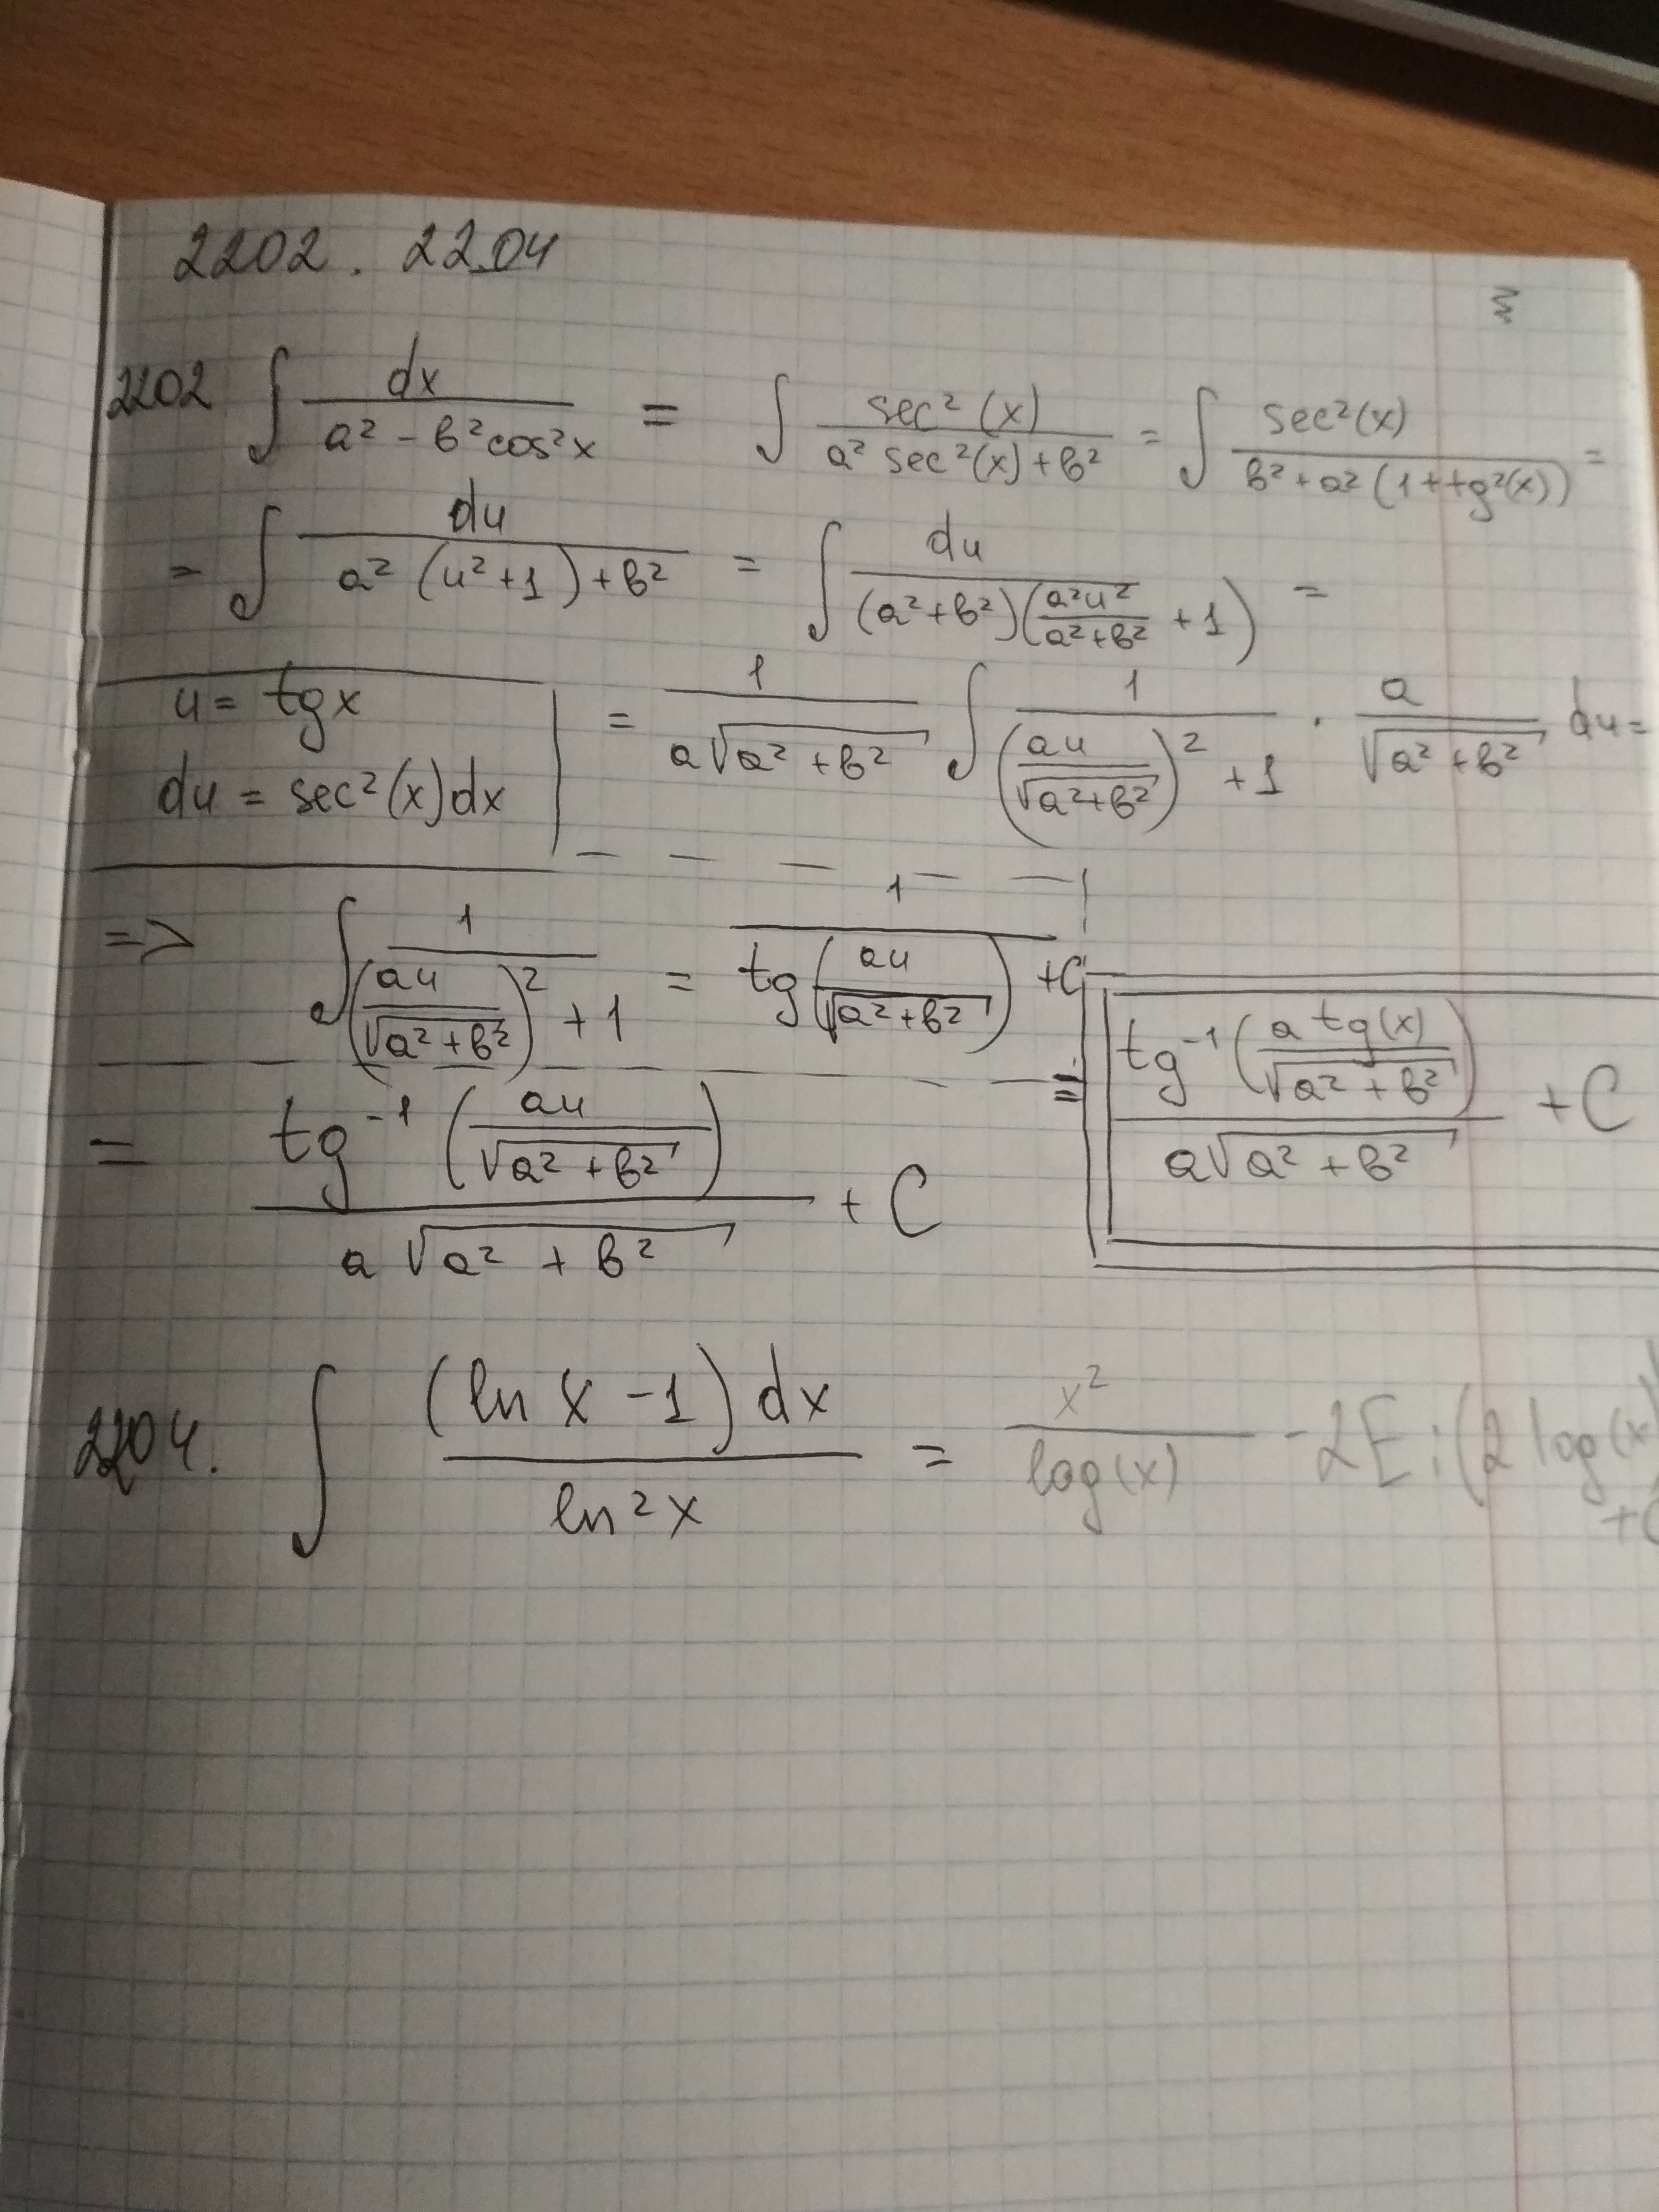 2202. 2204
2202 ∫ dx / (a² - b²cos²x) = ∫ sec²(x) / (a² sec²(x) + b²) = ∫ sec²(x) / (b² + a²(1 + tg²(x))) =
= ∫ du / (a²(u² + 1) + b²) = ∫ du / ((a² + b²)(a²u² / (a² + b²) + 1)) =
u = tgx
du = sec²(x)dx
= 1 / (a√(a² + b²)) ∫ 1 / ((au / √(a² + b²))² + 1) · a / √(a² + b²) du =
=> ∫ 1 / ((au / √(a² + b²))² + 1) = 1 / tg(au / √(a² + b²)) + C
= tg⁻¹(au / √(a² + b²)) / (a√(a² + b²)) + C
= tg⁻¹(a tg(x) / √(a² + b²)) / (a√(a² + b²)) + C
2204. ∫ (ln x - 1) dx / ln²x = x² / log(x) - 2Ei(2 log(x)
+C